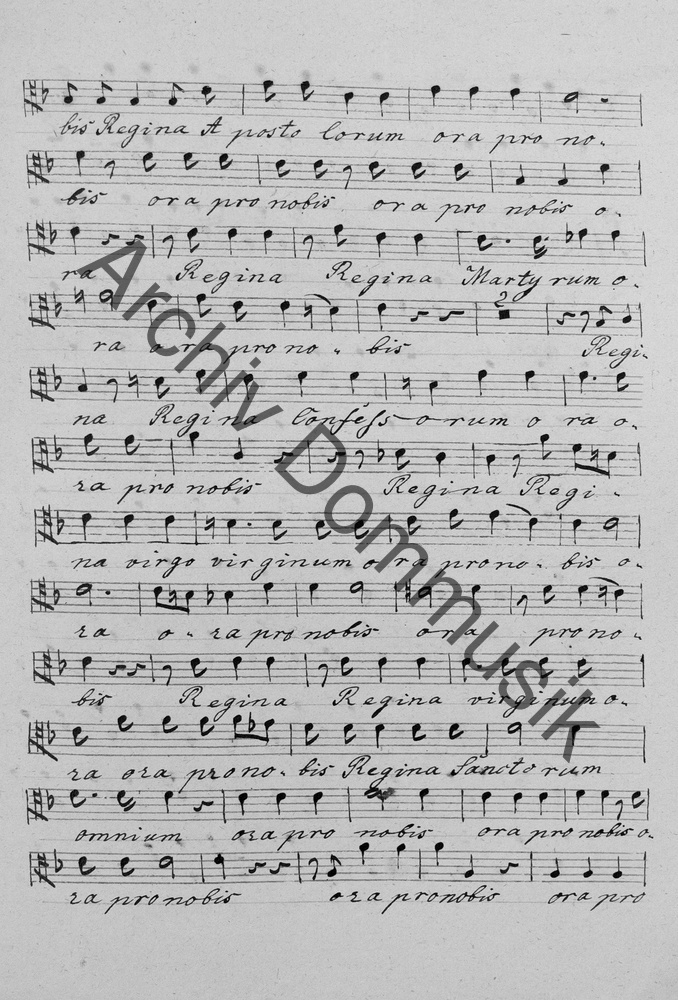 bis Regina A posto lorum ora pro no-
bis ora pro nobis ora pro nobis o-
ra Regina Regina Marty rum o-
ra ora pro no - bis Regi-
na Regina Confess-orum o ra o-
ra pro nobis Regina Regi -
na virgo virginum ora prono - bis o-
ra o - ra pro nobis ora prono -
bis Regina Regina virginum o-
ra ora prono - bis Regina Sanctorum
omnium ora pro nobis ora pro nobis o-
ra pro nobis ora pro nobis ora pro
Archiv Dommusik